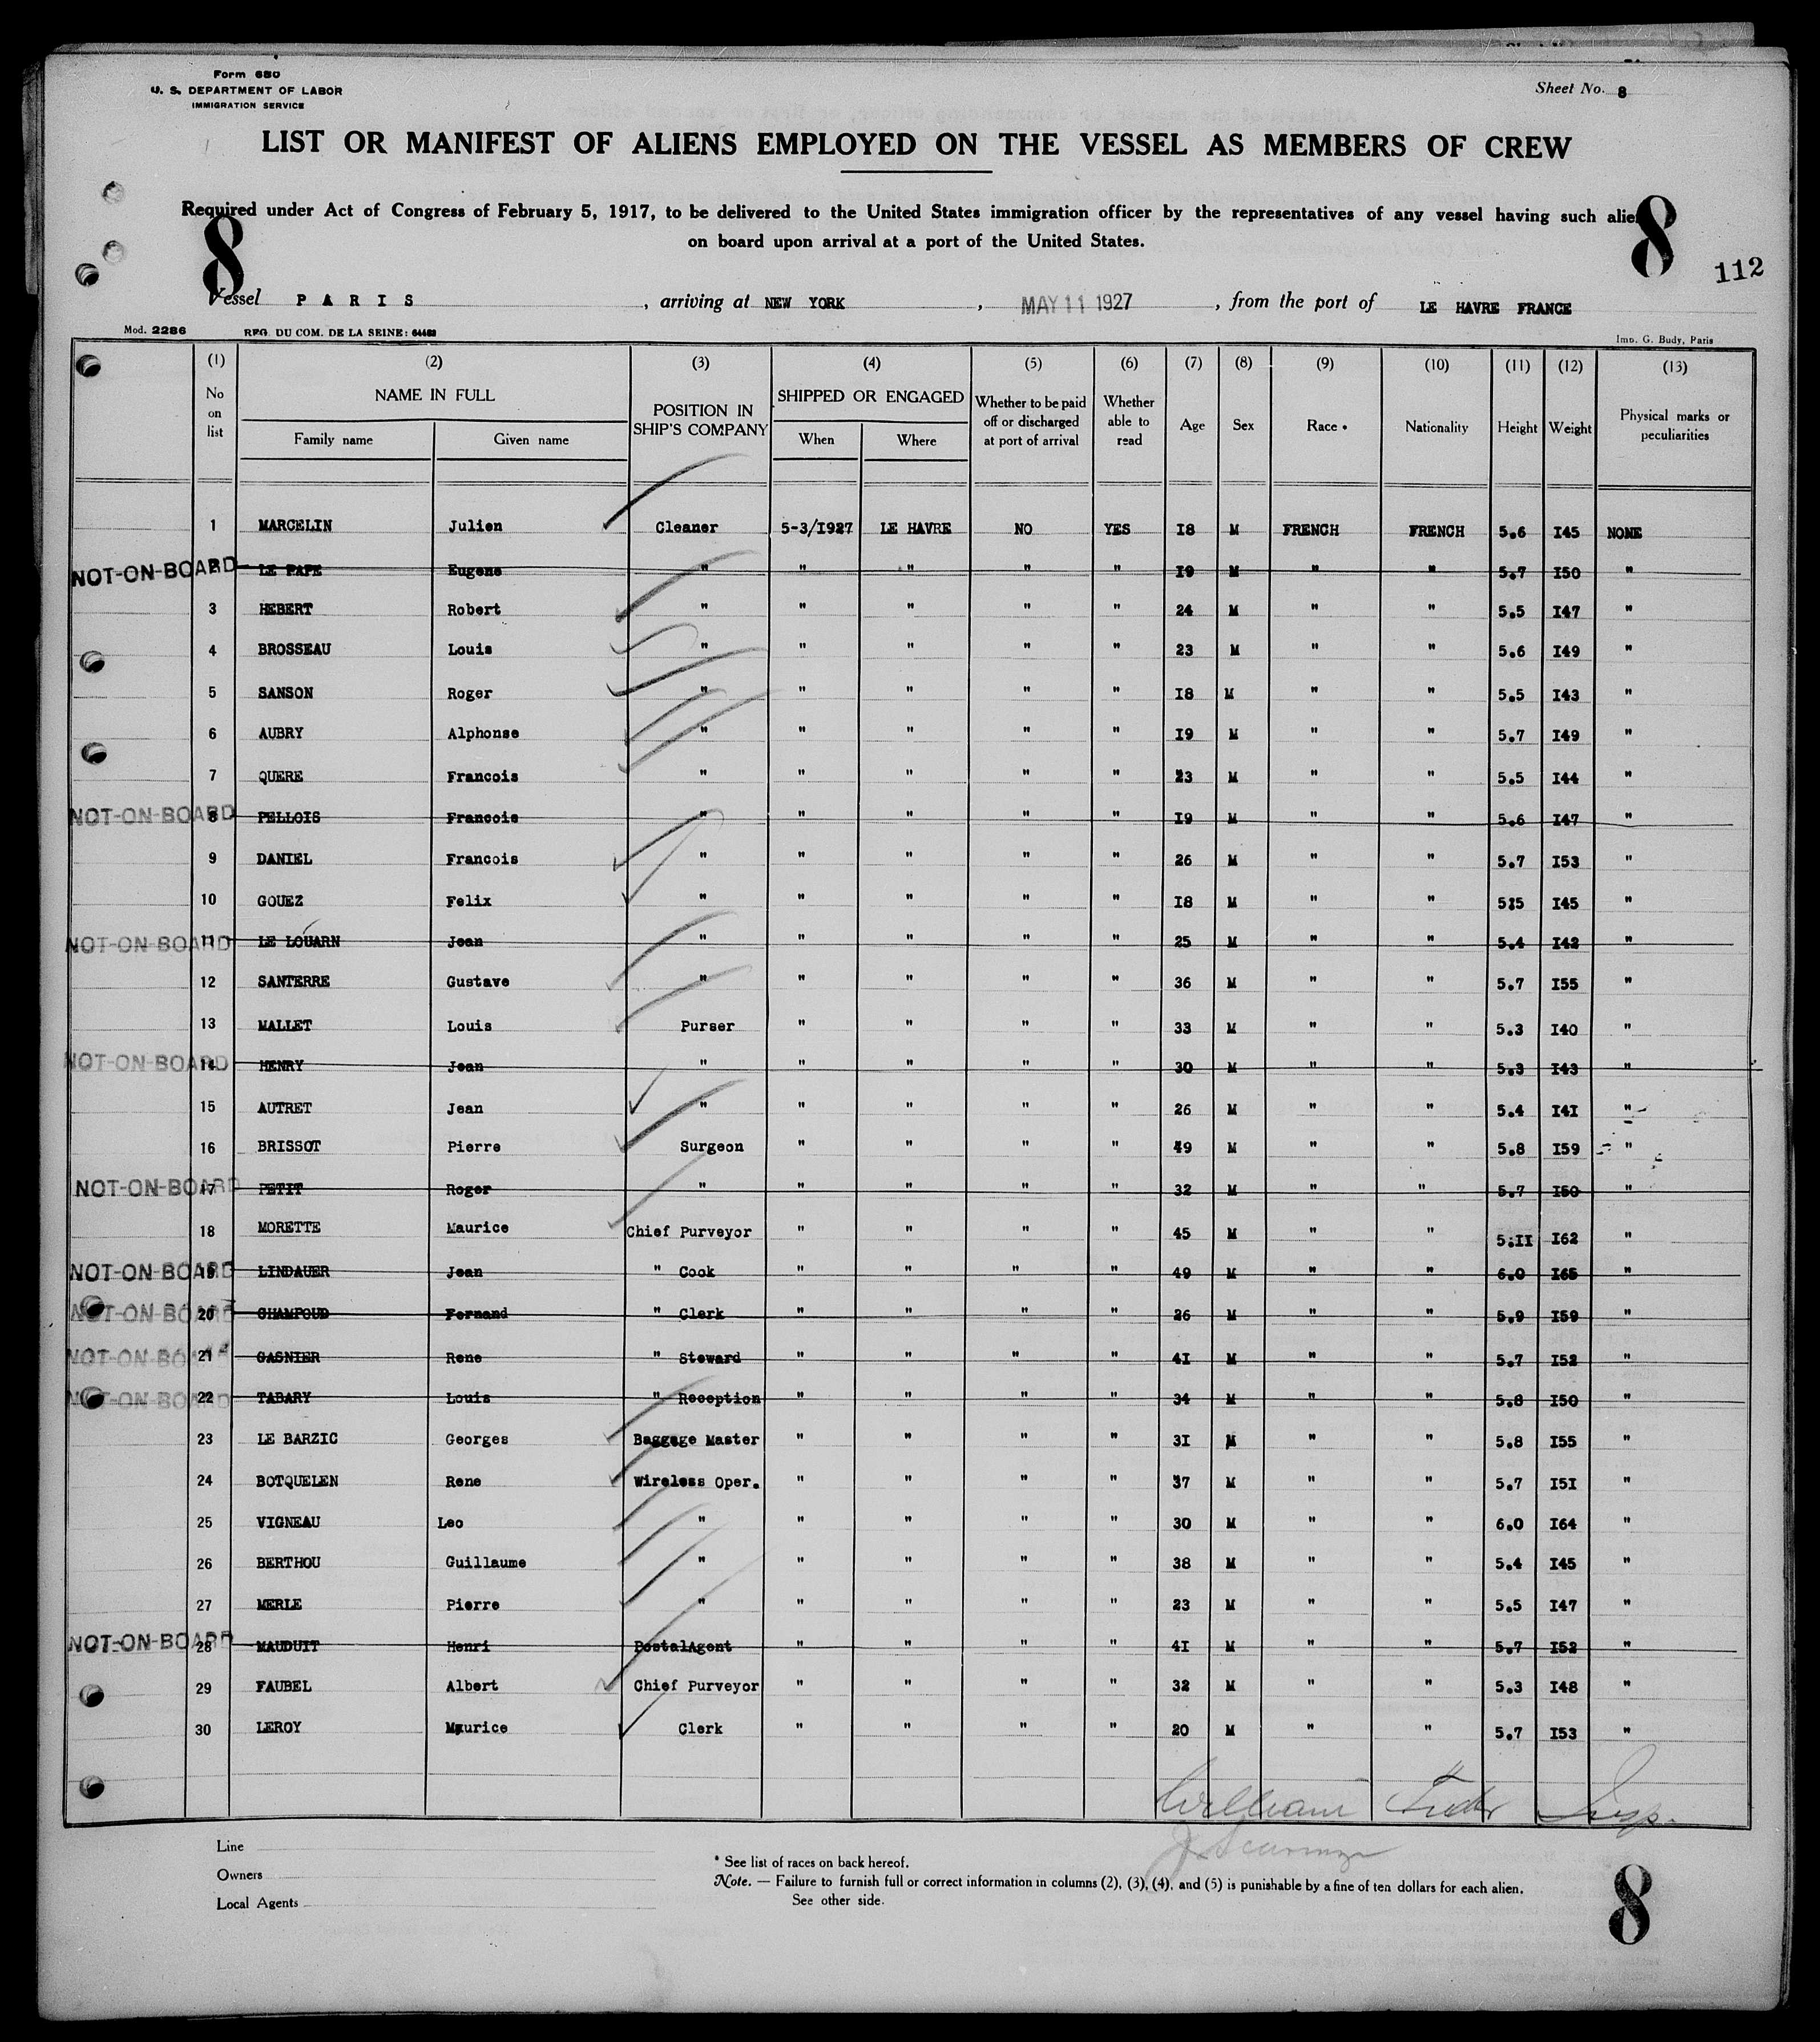 Form 680
U. S. DEPARTMENT OF LABOR
IMMIGRATION SERVICE
Sheet No. 8
LIST OR MANIFEST OF ALIENS EMPLOYED ON THE VESSEL AS MEMBERS OF CREW
Required under Act of Congress of February 5, 1917, to be delivered to the United States immigration officer by the representatives of any vessel having such alien
on board upon arrival at a port of the United States.
8 8
112
Vessel PARIS , arriving at NEW YORK , MAY 11 1927 , from the port of LE HAVRE FRANCE
Mod. 2286 REG. DU COM. DE LA SEINE: 64463 Imp. G. Budy, Paris
(1) (2) (3) (4) (5) (6) (7) (8) (9) (10) (11) (12) (13)
No on list NAME IN FULL Family name Given name POSITION IN SHIP'S COMPANY SHIPPED OR ENGAGED When Where Whether to be paid off or discharged at port of arrival Whether able to read Age Sex Race * Nationality Height Weight Physical marks or peculiarities
1 MARCELIN Julien Cleaner 5-3/I927 LE HAVRE NO YES I8 M FRENCH FRENCH 5.6 I45 NONE
NOT-ON-BOARD 2 LE PAPE Eugene " " " " " I9 M " " 5.7 I50 "
3 HEBERT Robert " " " " " 24 M " " 5.5 I47 "
4 BROSSEAU Louis " " " " " 23 M " " 5.6 I49 "
5 SANSON Roger " " " " " I8 M " " 5.5 I43 "
6 AUBRY Alphonse " " " " " I9 M " " 5.7 I49 "
7 QUERE Francois " " " " " 23 M " " 5.5 I44 "
NOT-ON-BOARD 8 PELLOIS Francois " " " " " I9 M " " 5.6 I47 "
9 DANIEL Francois " " " " " 26 M " " 5.7 I53 "
10 GOUEZ Felix " " " " " I8 M " " 5:5 I45 "
NOT-ON-BOARD 11 LE LOUARN Jean " " " " " 25 M " " 5.4 I42 "
12 SANTERRE Gustave " " " " " 36 M " " 5.7 I55 "
13 MALLET Louis Purser " " " " 33 M " " 5.3 I40 "
NOT-ON-BOARD 14 HENRY Jean " " " " " 30 M " " 5.3 I43 "
15 AUTRET Jean " " " " " 26 M " " 5.4 I4I "
16 BRISSOT Pierre Surgeon " " " " 49 M " " 5.8 I59 "
NOT-ON-BOARD 17 PETIT Roger " " " " " 32 M " " 5.7 I50 "
18 MORETTE Maurice Chief Purveyor " " " " 45 M " " 5.II I62 "
NOT-ON-BOARD 19 LINDAUER Jean " Cook " " " " 49 M " " 6.0 I65 "
NOT-ON-BOARD 20 CHAMPOUD Fernand " Clerk " " " " 26 M " " 5.9 I59 "
NOT-ON-BOARD 21 GASNIER Rene " Steward " " " " 4I M " " 5.7 I52 "
NOT-ON-BOARD 22 TABARY Louis " Reception " " " " 34 M " " 5.8 I50 "
23 LE BARZIC Georges Baggage Master " " " " 3I M " " 5.8 I55 "
24 BOTQUELEN Rene Wireless Oper. " " " " 37 M " " 5.7 I5I "
25 VIGNEAU Leo " " " " " 30 M " " 6.0 I64 "
26 BERTHOU Guillaume " " " " " 38 M " " 5.4 I45 "
27 MERLE Pierre " " " " " 23 M " " 5.5 I47 "
NOT-ON-BOARD 28 MAUDUIT Henri PostalAgent " " " " 4I M " " 5.7 I52 "
29 FAUBEL Albert Chief Purveyor " " " " 32 M " " 5.3 I48 "
30 LEROY Maurice Clerk " " " " 20 M " " 5.7 I53 "
William Insp.
Line
Owners
Local Agents
* See list of races on back hereof.
Note. — Failure to furnish full or correct information in columns (2), (3), (4), and (5) is punishable by a fine of ten dollars for each alien.
See other side.
8